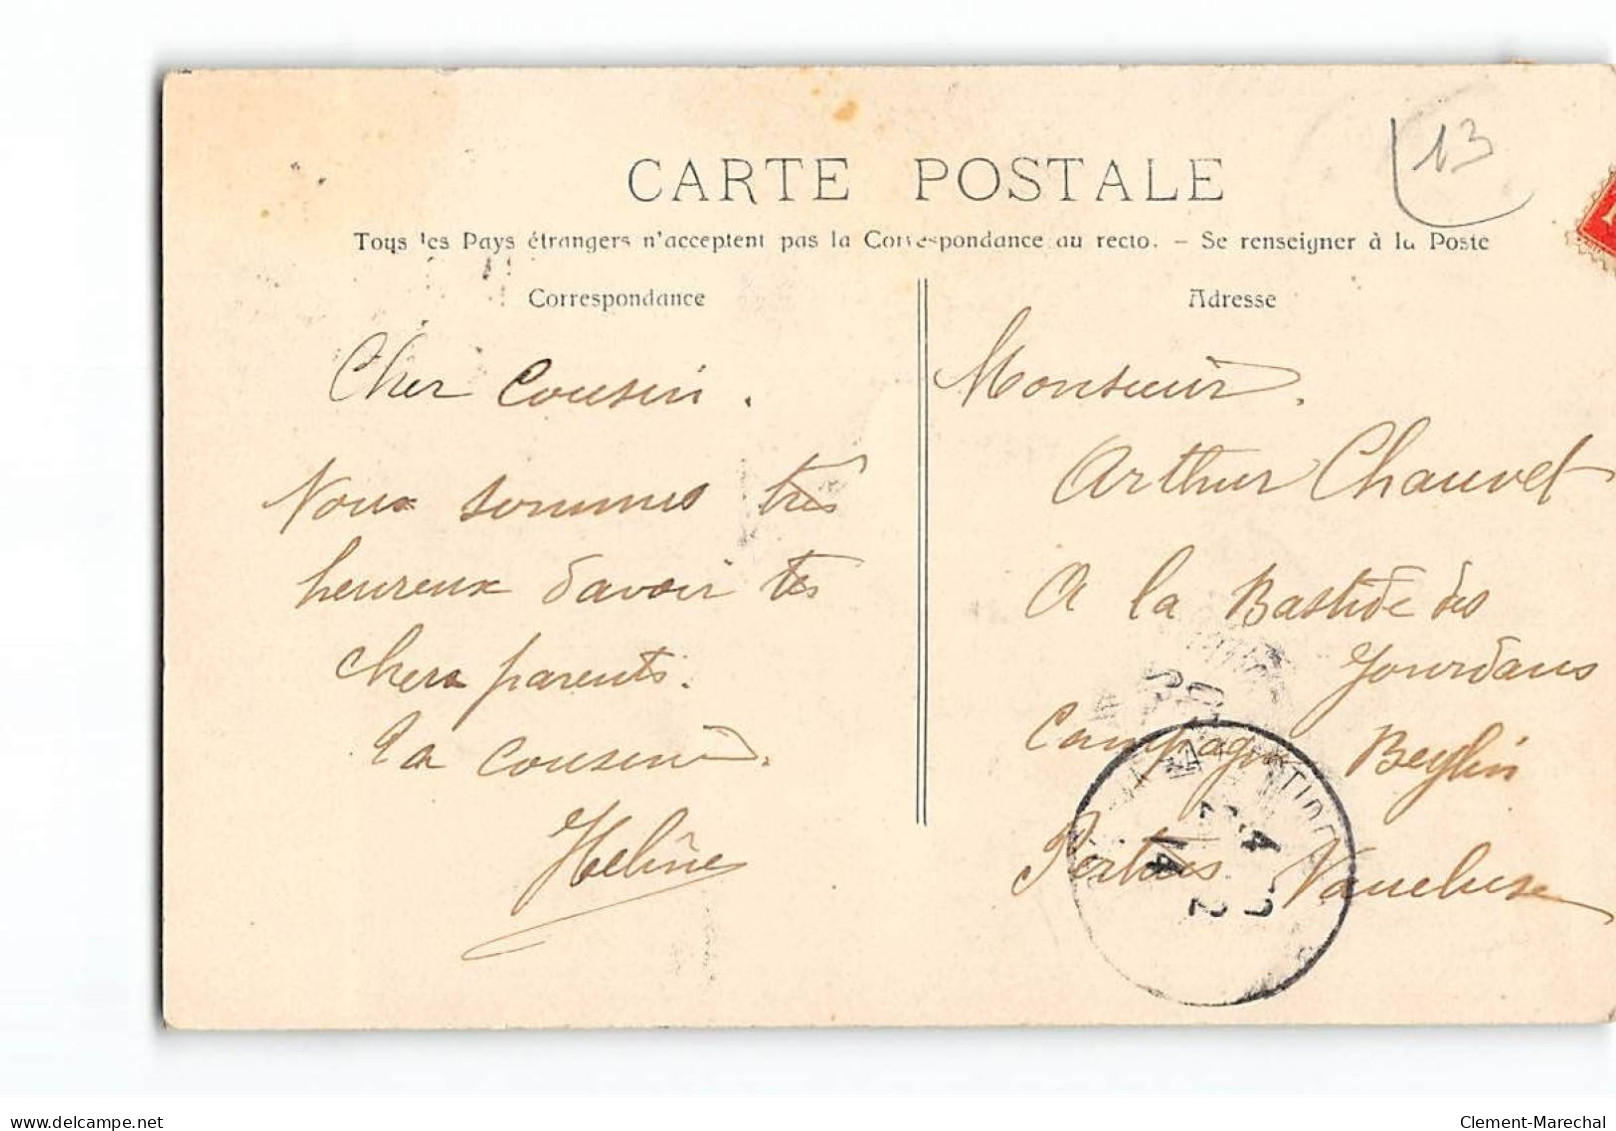 13
CARTE POSTALE
Tous les Pays étrangers n'acceptent pas la Correspondance au recto. - Se renseigner à la Poste
Correspondance
Adresse
Cher Cousin.
Nous sommes très
heureux d'avoir tes
chers parents.
Ta cousine.
Helène
Monsieur.
Arthur Chauvet
A la Bastide des
Jourdans
Campagne Beylin
Pertuis Vaucluse
14
delcampe.net
Clement-Marechal